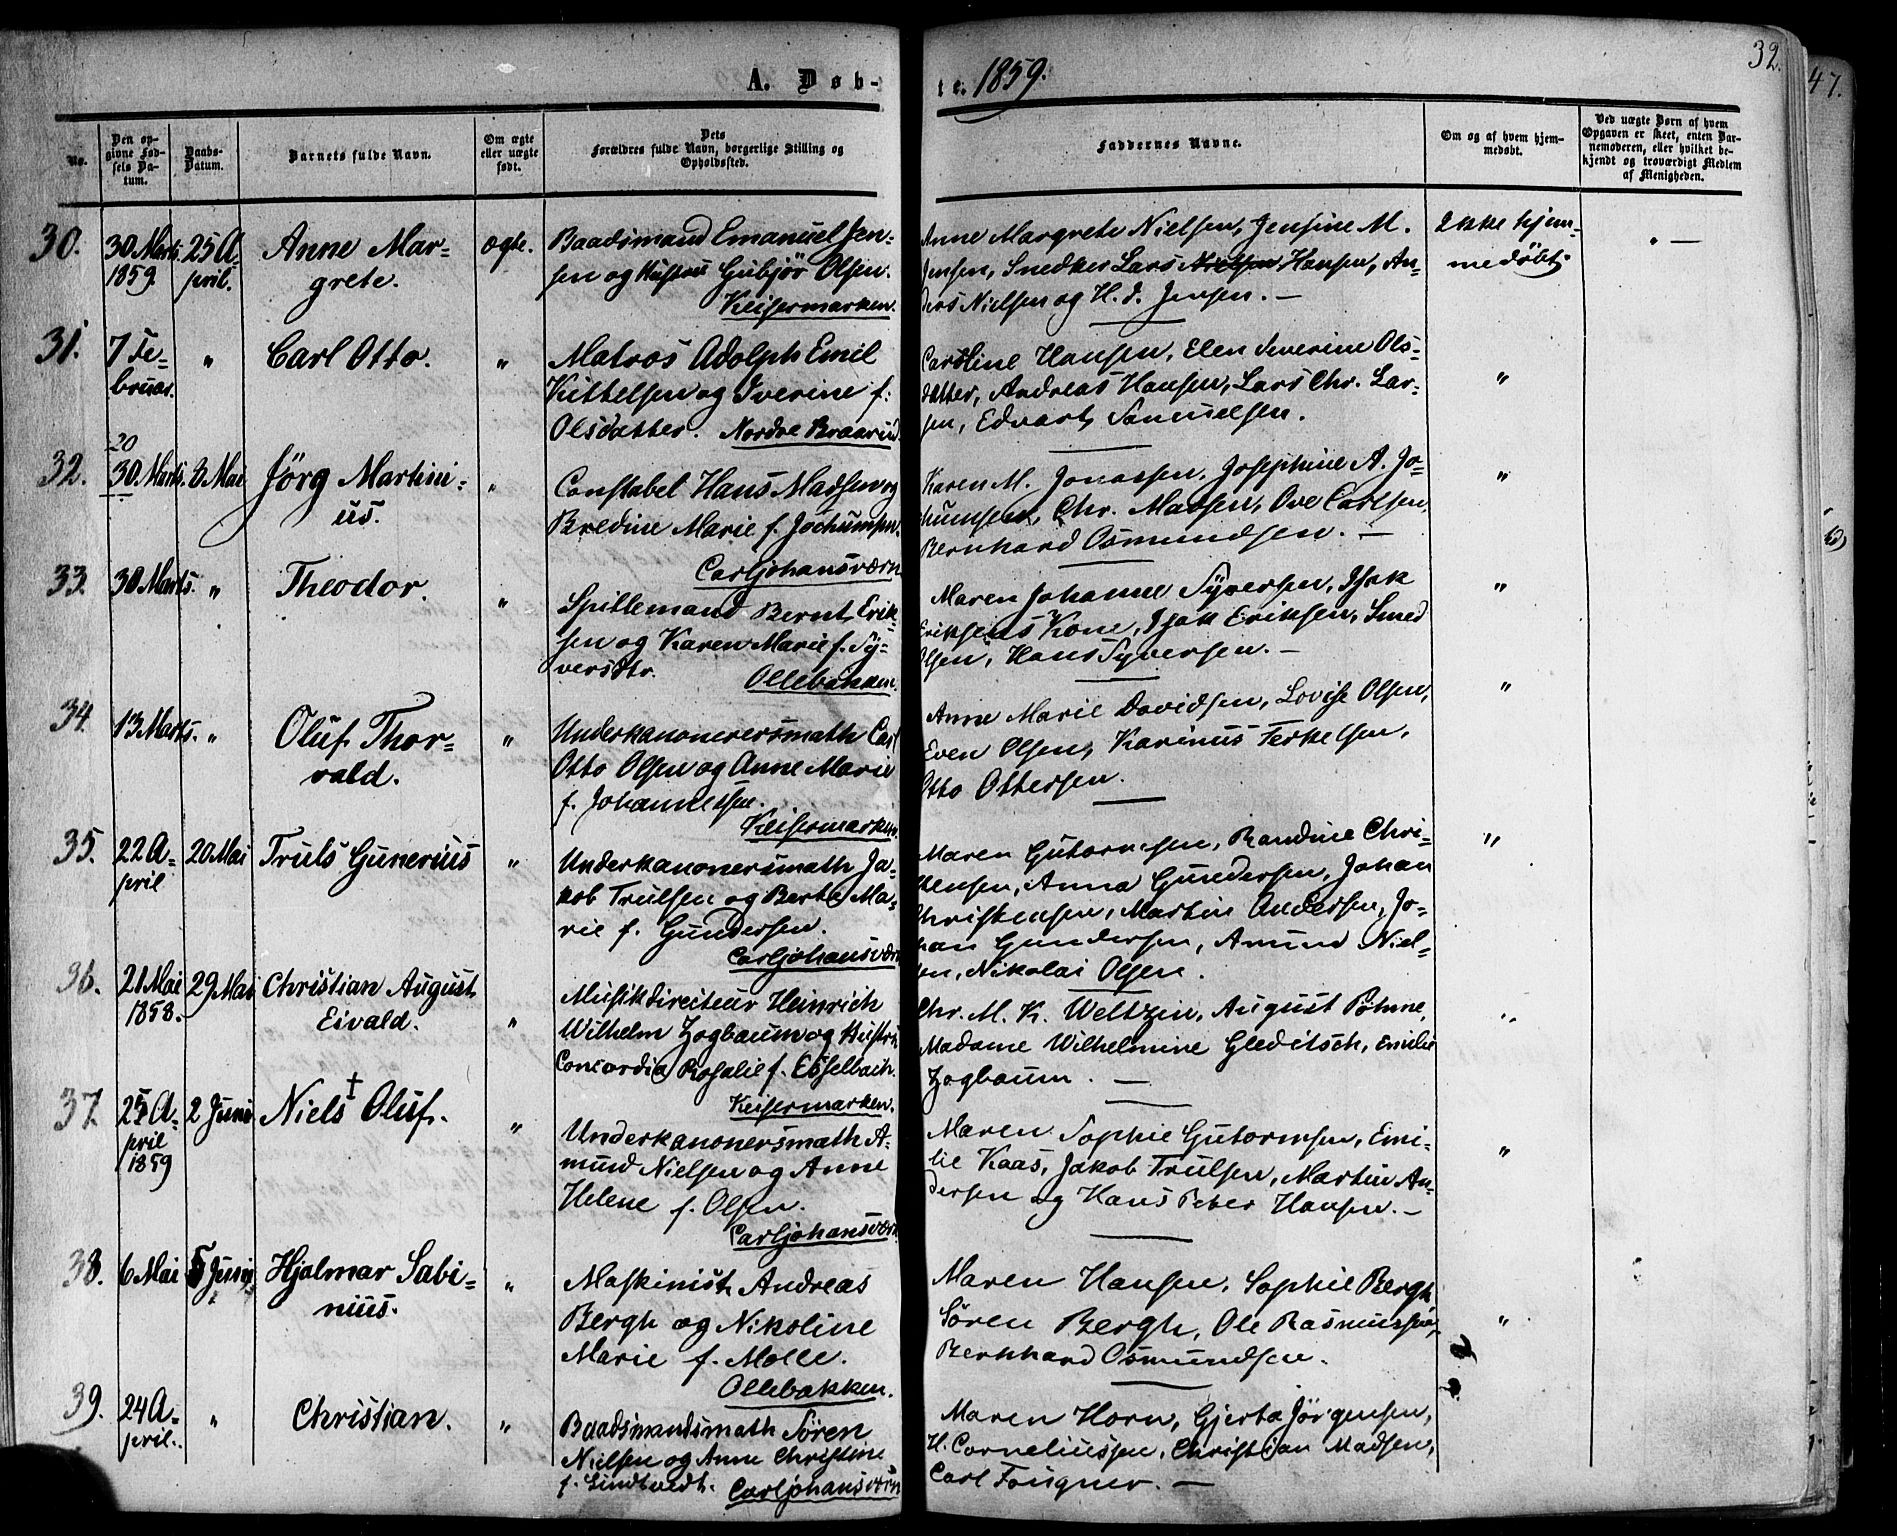 A. Døb-
te. 1859.
32.
47.
No.
Den op-
givne Fød-
sels Da-
tum.
Daabs-
Datum.
Barnets fulde Navn.
Om ægte
eller uægte
født.
Dets
Forældres fulde Navn, borgerlige Stilling og
Opholdssted.
Faddernes Navne.
Om og af hvem hjem-
medøbt.
Ved uægte Børn af hvem
Opgaven er skeet, enten Bar-
nemoderen, eller hvilket be-
kjendt og troværdigt Medlem
af Menigheden.
30.
30 Marts
1859.
25 A-
pril.
Anne Mar-
grete.
ægte.
Baadsmand Emanuel Jen-
sen og Hustru Gubjør Olsen.
Keisermarken.
Anne Margrete Nielsen, Jensine M.
Jensen, Snedker Lars Nielsen Hansen, An-
ders Nielsen og H. J. Jensen. —
Ikke hjem-
medøbt.
" —
31.
7 Fe-
bruar.
"
Carl Otto.
"
Matros Adolph Emil
Kittelsen og Iverine f:
Olsdatter. Nordre Braarud
Caroline Hansen, Elen Severine Ols-
datter, Andreas Hansen, Lars Chr. Lar-
sen, Edvart Samuelsen.
"
32.
20
30. Marts.
8 Mai
Jörg Martini-
us.
"
Constabel Hans Madsen og
Bredine Marie f. Jochumsen.
Carljohansværn
Karen M. Jonassen, Josephine A. Jo-
chumsen, Chr. Madsen, Ove Carlsen,
Bernhard Osmundsen. —
"
33.
30 Marts.
"
Theodor.
"
Spillemand Bernt Erik-
sen og Karen Marie f. Sy-
versdtr.
Ollebakken.
Maren Johanne Syversen, Isak
Eriksens Kone, Isak Eriksen, Smed
Olsen, Hans Syversen. —
"
34.
13 Marts.
"
Oluf Thor-
vald.
"
Underkanonerersmath Carl
Otto Olsen og Anne Marie
f. Johannessen.
Keisermarken
Anne Marie Davidsen, Lovise Olsen,
Even Olsen, Karinus Terkelsen,
Otto Ottersen.
"
35.
22 A-
pril
20 Mai
Truls Gunerius
"
Underkanonersmath Ja-
kob Trulsen og Berte Ma-
rie f. Gundersen.
Carljohansværn
Maren Gutormsen, Randine Chri-
stensen, Anna Gundersen, Johan
Christensen, Martin Andersen, Jo-
han Gundersen, Amund Niel-
sen, Nikolai Olsen.
"
36.
21 Mai
1858.
29 Mai
Christian August
Eivald.
"
Musikdirecteur Heinrich
Wilhelm Zogbaum og Hustru
Concordia Rosalie f. Esselbach.
Keisermarken.
Chr. M. K. Weltzin, August Böhme,
Madame Wilhelmine Gleditsch, Emilie
Zogbaum. —
"
37.
25 A-
pril
1859
2 Juni
†
Niels Oluf.
"
Underkanonersmath A-
mund Nielsen og Anne
Helene f. Olsen.
Carljohansværn
Maren Sophie Gutormsen, Emi-
lie Kaas, Jakob Trulsen, Martin An-
dersen og Hans Peter Hansen. —
"
38.
6 Mai
5 Juni
Hjalmar Sabi-
nius.
"
Maskinist Andreas
Bergh og Nikoline
Marie f. Molle.
Ollebakken.
Maren Hansen, Sophie Bergh
Sören Bergh, Ole Rasmussen,
Bernhard Osmundsen.
"
39.
24 A-
pril.
"
Christian.
"
Baadsmandsmath Sören
Nielsen og Anne Christine
f. Lindtvedt. Carljohansværn
Maren Horn, Gjerta Jörgensen,
H. Corneliussen, Christian Madsen,
Carl Fougner. —